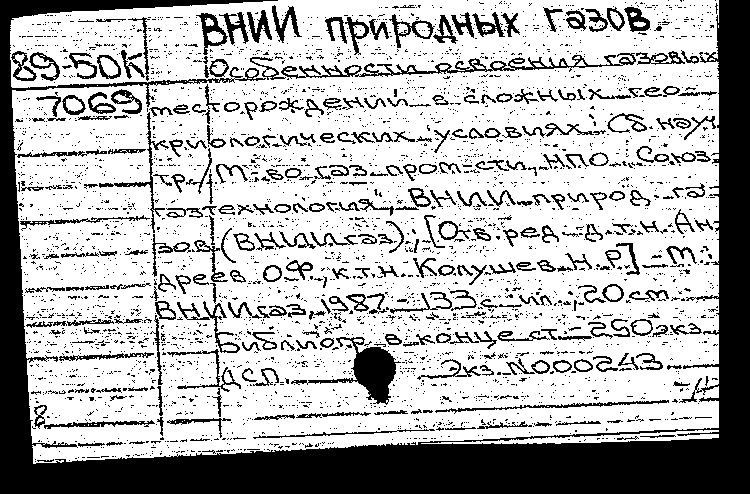 ВНИИ природных газов.
89-50К Особенности освоения газовых
7069 месторождений в сложных гео-
криологических условиях: Сб. науч.
тр. / М-во газ. пром-сти, НПО "Союз-
газтехнология", ВНИИ природ. га-
зов (ВНИИгаз); [Отв. ред. д.т.н. Ан-
дреев О.Ф., к.т.н. Колушев Н.Р.] - М.:
ВНИИгаз, 1987. - 133 с.: ил.; 20 см. -
Библиогр. в конце ст. - 250 экз.
ДСП. Экз. N000243
8.